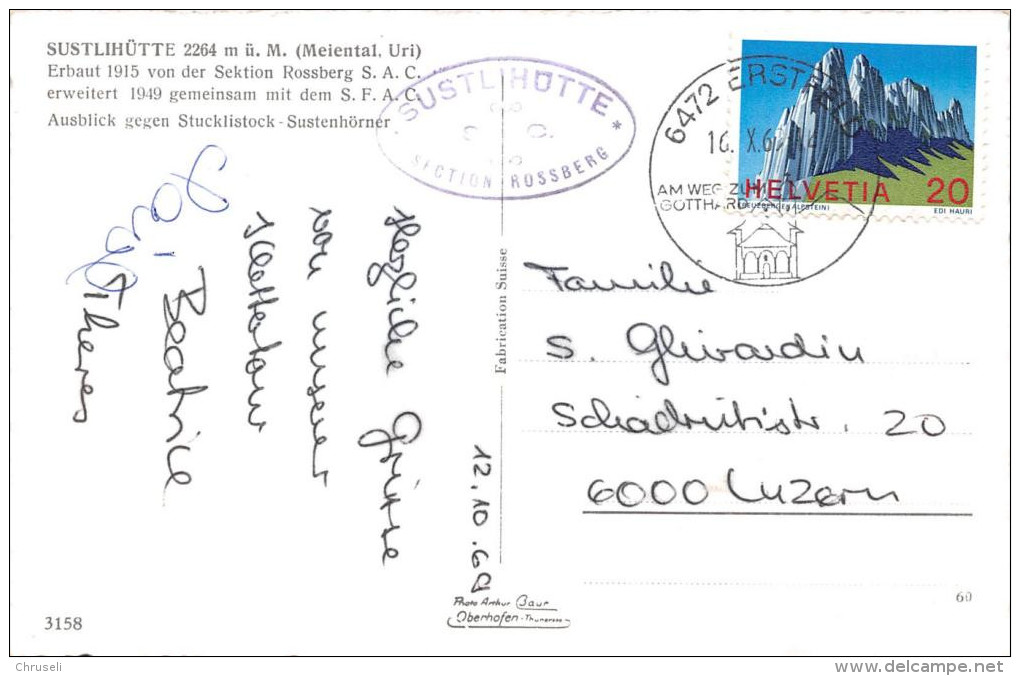 SUSTLIHÜTTE 2264 m ü. M. (Meiental, Uri)
Erbaut 1915 von der Sektion Rossberg S. A. C.
erweitert 1949 gemeinsam mit dem S. F. A. C.
Ausblick gegen Stucklistock-Sustenhörner
SUSTLIHÜTTE *
S C.
SECTION ROSSBERG
6472 ERSTFELD
16. X. 6
AM WEG ZUM
GOTTHARD
HELVETIA 20
EDI HAURI
12.10.69
Herzliche Grüsse
von unserer
Klettertour
Beatrice
Theres
Fabrication Suisse
Familie
S. Ghirardin
20
6000 Luzern
Photo Arthur Baur
Oberhofen-Thunersee
60
3158
Chruseli
www.delcampe.net